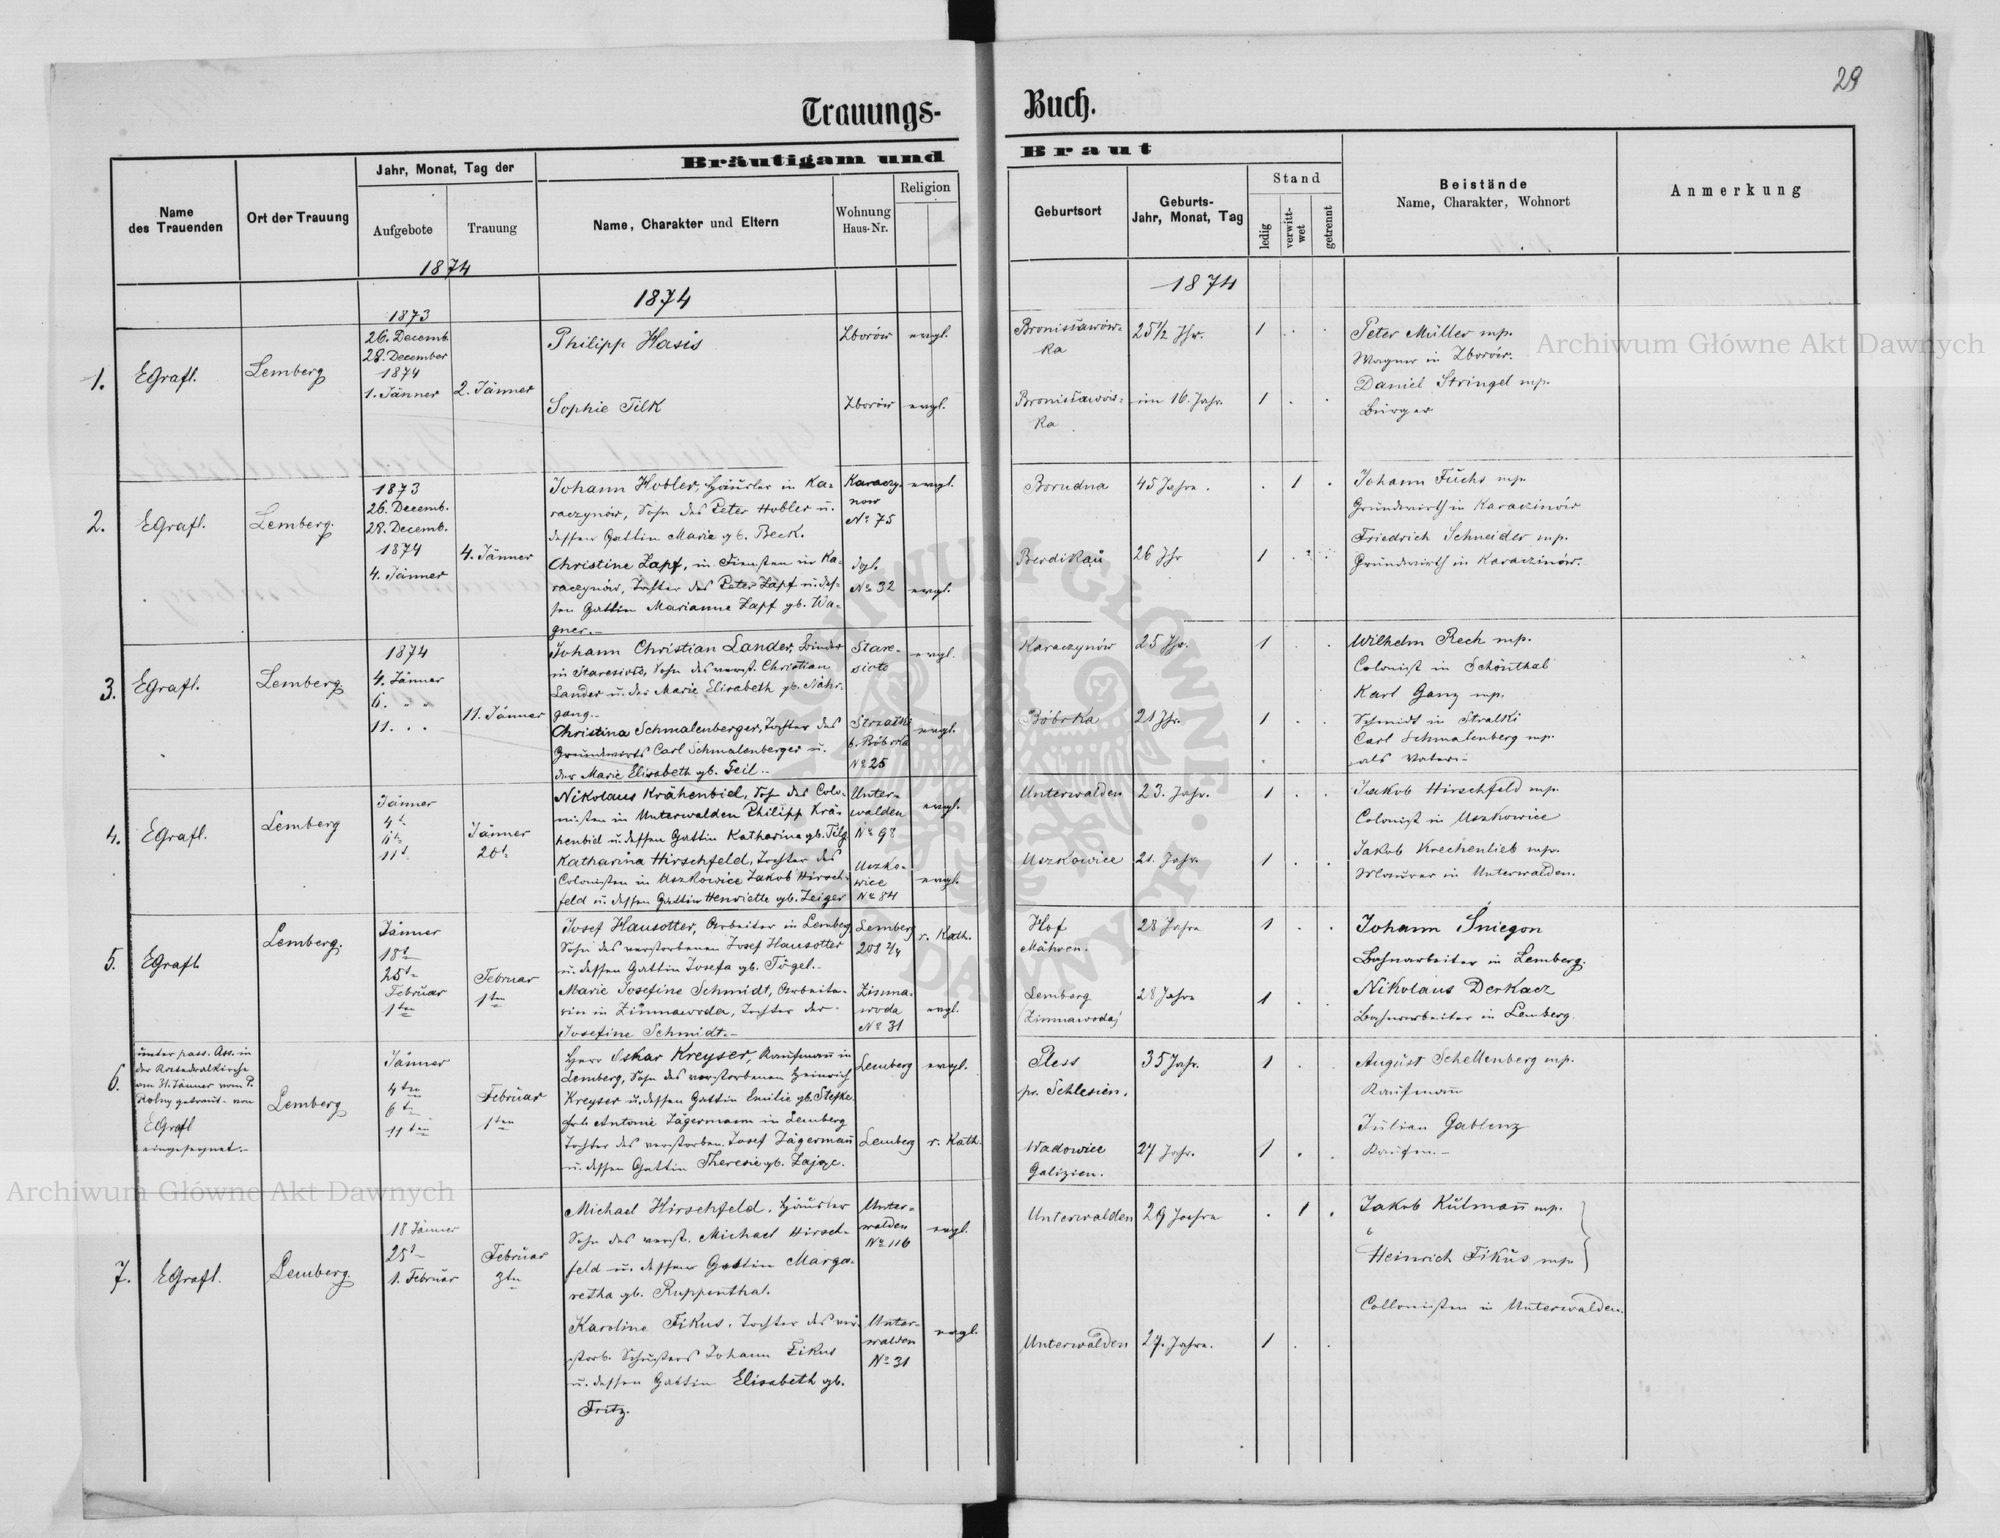 29
Trauungs- Buch.
Name des Trauenden
Ort der Trauung
Jahr, Monat, Tag der
Aufgebote
Trauung
Bräutigam und Braut
Name, Charakter und Eltern
Wohnung Haus-Nr.
Religion
Geburtsort
Geburts-Jahr, Monat, Tag
Stand
ledig
verwittwet
getrennt
Beistände
Name, Charakter, Wohnort
Anmerkung
1874
1874
1874
1.
EGrafl.
Lemberg
1873
26. Decemb.
28. December
1874
1. Jänner
2. Jänner
Philipp Hasis
Zborów
evgl.
Bronisławów-
ka
25 1/2 Jhr.
1
Peter Müller mp.
Wagner in Zborów.
Sophie Tilk
Zborów
evgl.
Bronisławów-
ka
im 16. Jahr.
1
Daniel Stringel mp.
Bürger
2.
EGrafl.
Lemberg.
1873
26. Decemb.
28. Decemb.
1874
4. Jänner
4. Jänner
Johann Hobler, Häusler in Ka-
raczynów, Sohn des Peter Hobler u.
dessen Gattin Marie gb. Beck.
Karaczy-
now
No 75
evgl.
Borudna
45 Jahre.
1
Johann Fuchs mp.
Grundwirth in Karaczinów
Christine Zapf, in Diensten in Ka-
raczynów, Tochter des Peter Zapf u. des-
sen Gattin Marianne Zapf gb. Wa-
gner.-
No 32
evgl.
Berdikau
26 Jhr
1
Friedrich Schneider mp.
Grundwirth in Karaczinów.
3.
EGrafl.
Lemberg
1874
4. Jänner
6. " "
11. " "
11. Jänner
Johann Christian Lander, Binder
in Staresioło, Sohn des verst. Christian
Lander u. der Marie Elisabeth gb. Nähr-
gang.-
Stare-
sioło
evgl.
Karaczynów
25 Jhr.
1
Wilhelm Rech mp.
Colonist in Schönthal
Karl Ganz mp.
Schmidt in Stralki
Christina Schmalenberger, Tochter des
Grundwirts Carl Schmalenberger u.
der Marie Elisabeth gb. Geil.-
Strzałki
b. Bóbrka
No 25
evgl.
Bóbrka
21 Jhr.
1
Carl Schmalenberg mp.
als Vater.-
4.
EGrafl.
Lemberg
Jänner
4t
6t
11t
Jänner
20t
Nikolaus Krähenbiel, Sohn des Colo-
nisten in Unterwalden Philipp Krä-
henbiel u. dessen Gattin Katharina gb. Filz
Unter-
walden
No 98
evgl.
Unterwalden
23. Jahr.
1
Jakob Hirschfeld mp.
Colonist in Uszkowice
Katharina Hirschfeld, Tochter des
Colonisten in Uszkowice Jakob Hirsch-
feld u. dessen Gattin Henriette gb. Zeiger
Uszko-
wice
No 84
evgl.
Uszkowice
21. Jahr.
1
Jakob Krechenlieb mp.
Maurer in Unterwalden.
5.
EGrafl
Lemberg.
Jänner
18t
25t
Februar
1ten
Februar
1ten
Josef Hausotter, Arbeiter in Lemberg
Sohn des verstorbenen Josef Hausotter
u. dessen Gattin Josefa gb. Tögel.-
Lemberg
208 2/4
r. Kath.
Hof
Mähren.
28 Jahre
1
Johann Śniegon
Bahnarbeiter in Lemberg.
Marie Josefine Schmidt, Arbeite-
rin in Zimnawoda, Tochter der
Josefine Schmidt.-
Zimna-
woda
No 31
evgl.
Lemberg
(Zimnawoda)
28 Jahre
1
Nikolaus Derkacz
Bahnarbeiter in Lemberg.
6.
unter pass. Ass. in
der Katedralkirche
am 31. Jänner vom P.
Rolny getraut - von
EGrafl
eingesegnet.-
Lemberg
Jänner
4ten
6t
11ten
Februar
1ten
Herr Oskar Kreyser, Kaufmann in
Lemberg, Sohn des verstorbenen Heinrich
Kreyser u. dessen Gattin Emilie gb. Stefke.
Lemberg
evgl.
Pless
pr. Schlesien.
35 Jahr.
1
August Schellenberg mp.
Kaufmann
Frl. Antonie Jägermann in Lemberg
Tochter des verstorben. Josef Jägermann
u. dessen Gattin Theresie gb. Zając.
Lemberg
r. Kath.
Wadowice
Galizien.
27 Jahr.
1
Julian Gablenz
Kaufm.-
7.
EGrafl.
Lemberg.
18 Jänner
25t
1. Februar
Februar
3ten
Michael Hirschfeld, Häusler
Sohn des verst. Michael Hirsch-
feld u. dessen Gattin Marga-
retha gb. Ruppenthal.
Unter-
walden
No 116
evgl.
Unterwalden
29 Jahre
1
Jakob Kulmann mp.
Heinrich Fikus mp.
Collonisten in Unterwalden.
Karoline Fikus, Tochter des ver-
storb. Schusters Johann Fikus
u. dessen Gattin Elisabeth gb.
Fritz.
Unter-
walden
No 31
evgl.
Unterwalden
27. Jahre.
1
Archiwum Główne Akt Dawnych
Archiwum Główne Akt Dawnych
ARCHIWUM GŁÓWNE AKT DAWNYCH